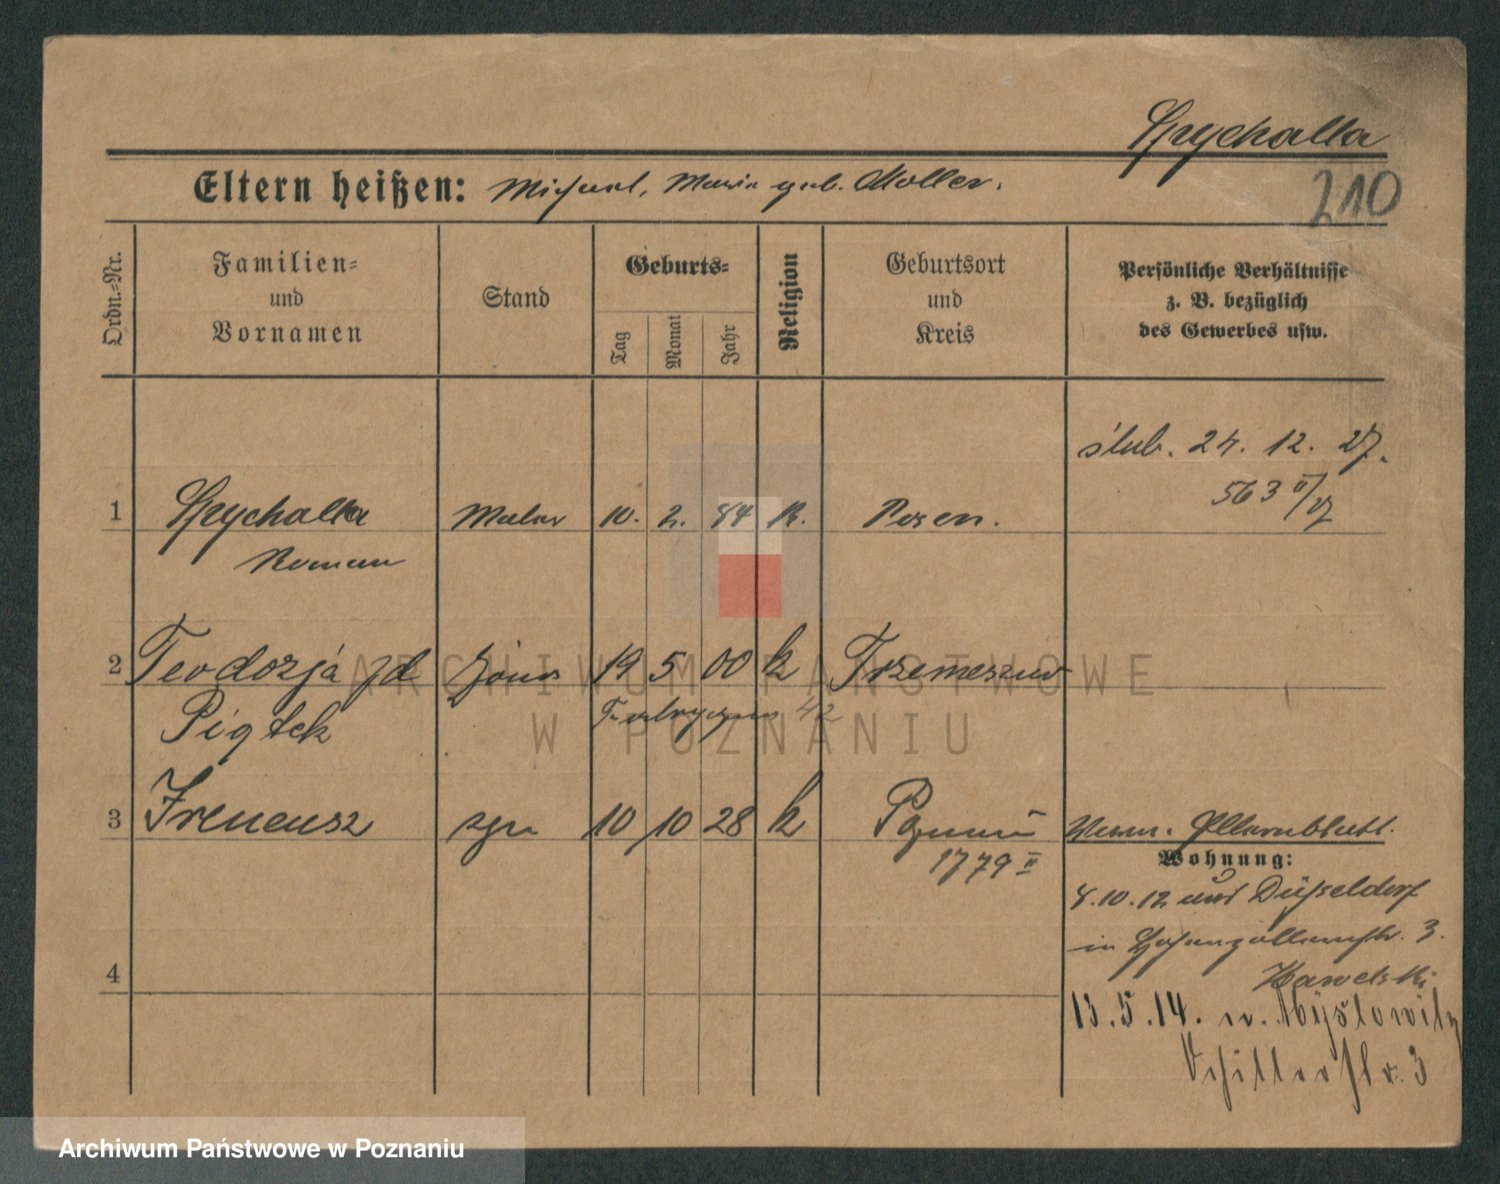 Spychalla
Eltern heißen: Michael, Maria geb. Moller.
210
Ordn.-Nr.
Familien-
und
Vornamen
Stand
Geburts-
Tag
Monat
Jahr
Religion
Geburtsort
und
Kreis
Persönliche Verhältnisse
z. B. bezüglich
des Gewerbes usw.
ślub. 24. 12. 27.
563 II/27
1 Spychalla Maler 10. 2. 84 k. Posen.
Roman
2 Teodozja zd żona 19 5 00 k Trzemeszno
Piątek
42
3 Ireneusz syn 10 10 28 k Poznań
1779 II
Elternblatt.
Wohnung:
8.10.12 Düsseldorf
in Hohenzollernstr. 3.
4
Hawelski
13.5.14. n. Myslowitz
Schillerstr. 3
ARCHIWUM PAŃSTWOWE
W POZNANIU
Archiwum Państwowe w Poznaniu